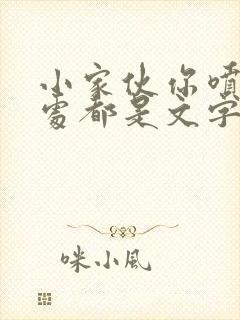 小家伙你喷
处都是文字
咪小风